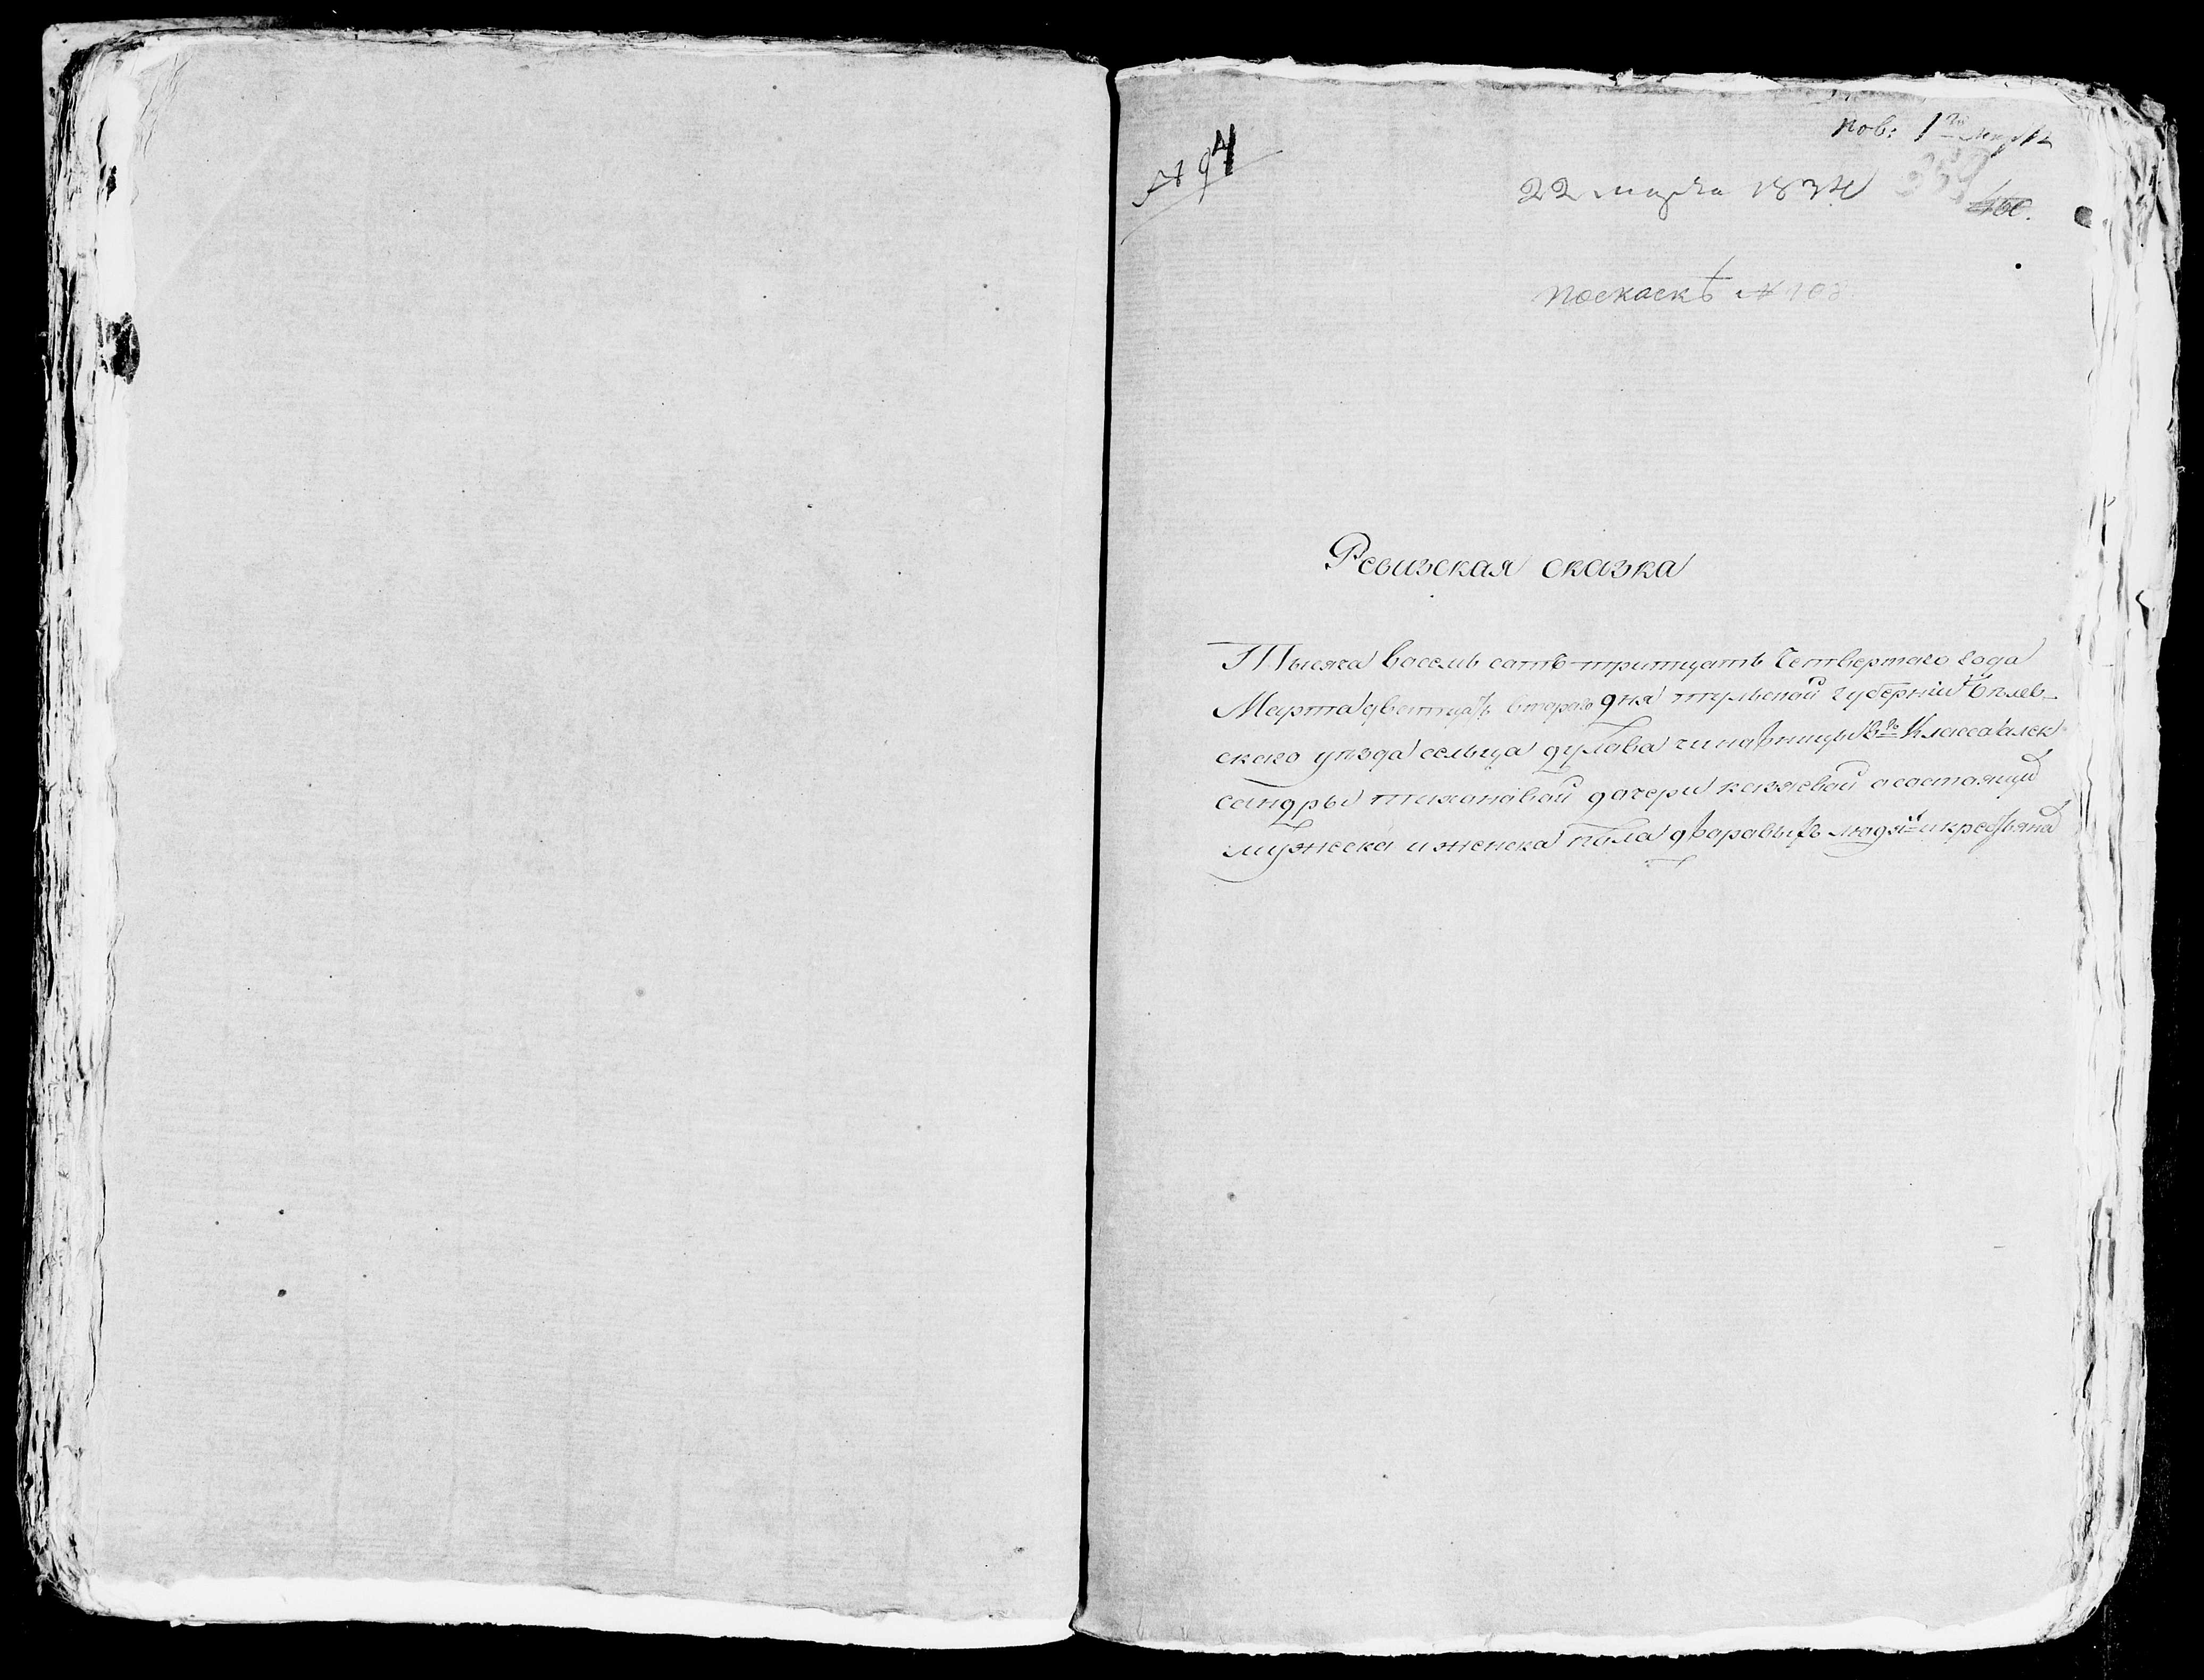 № 94
Пов: 1го
22 марта 1834
460.
поскаскѣ № 108
Ревизская сказка
Тысяча восемь сотъ тритцать Четвертаго года
Марта дватцать втораго дня тульской губерніи Бѣлев-
скаго уѣзда сельца дулова чиновницы Класса алек-
сандры тихоновой дочери казяевой а состоящих
мужеска и женска пола дворавыхъ людяй и крестьянах